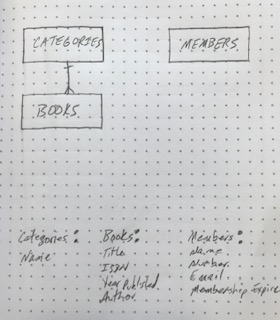 CATEGORIES
MEMBERS
BOOKS
Categories:
Name
Books:
Title
ISBN
Year Published
Author
Members:
Name
Number
Email
Membership Expire